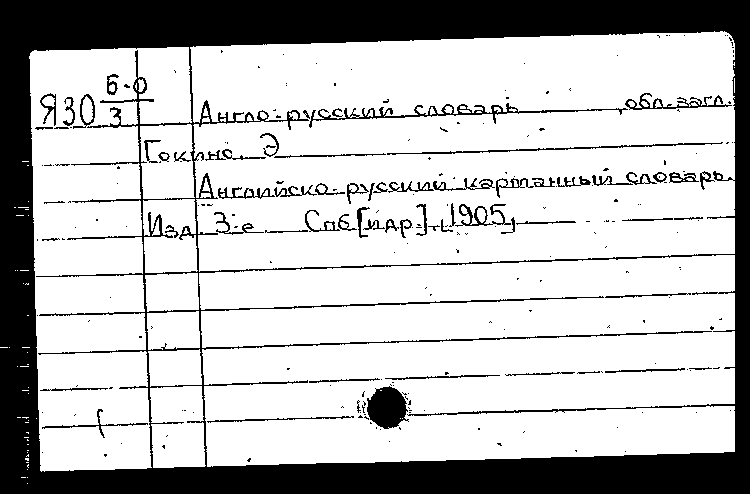 Я30 6-0/3 Англо-русский словарь, обл. загл.
Гокинс. Э
Английско-русский карманный словарь.
Изд 3-е Спб [и др.], [1905]